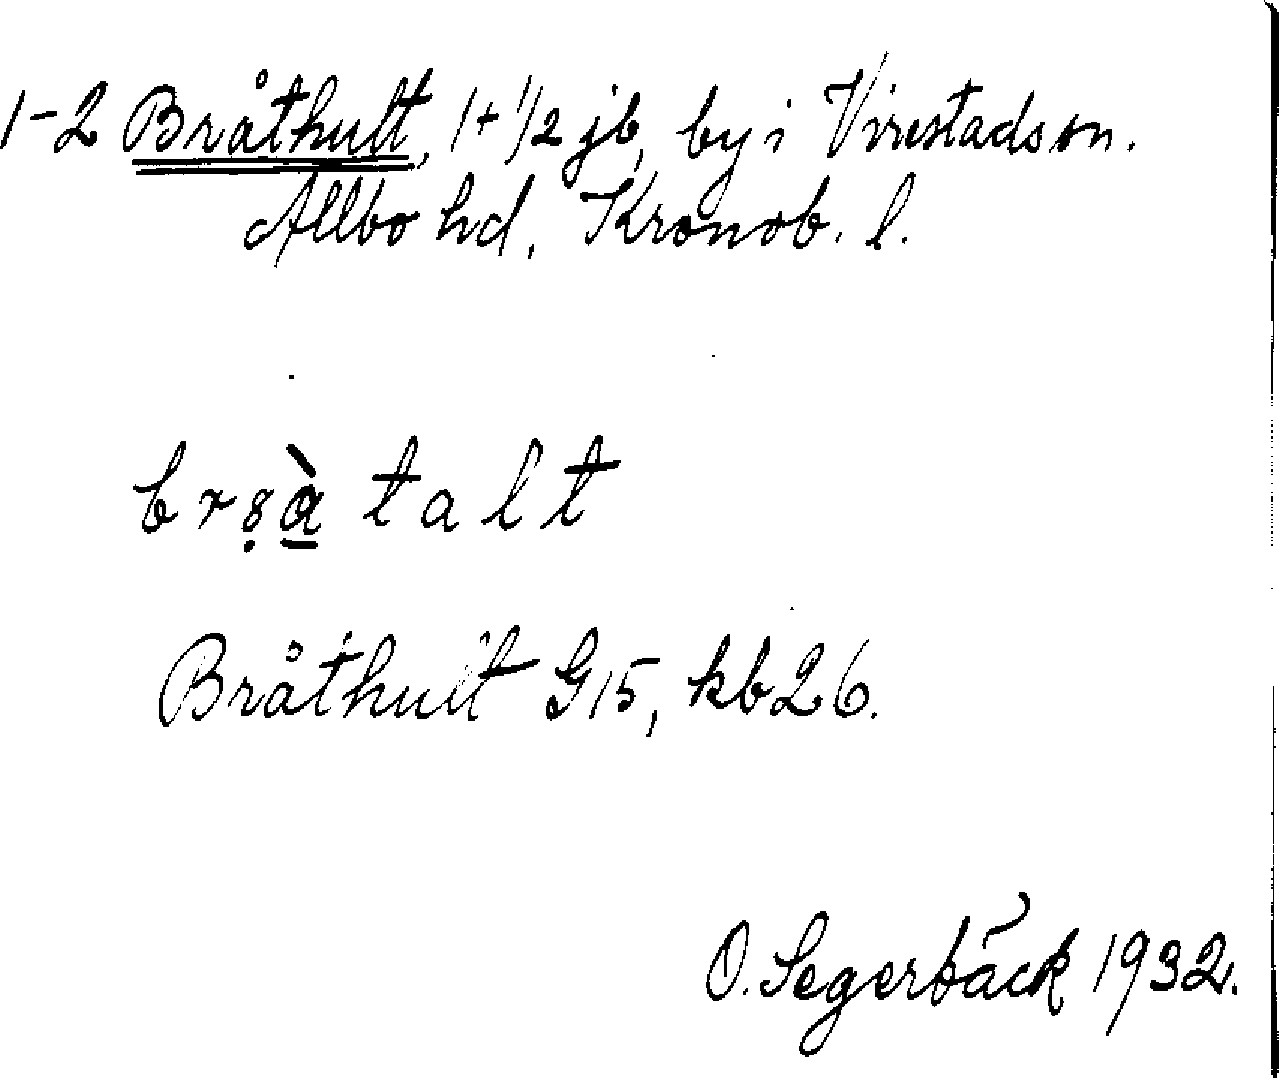 1-2 Bråthult, 1+1/2 jb, by i Virestads sn.
Allbo hd, Kronob. l.
talt
Bråthult G15, kb26.
O. Segerbäck 1932.